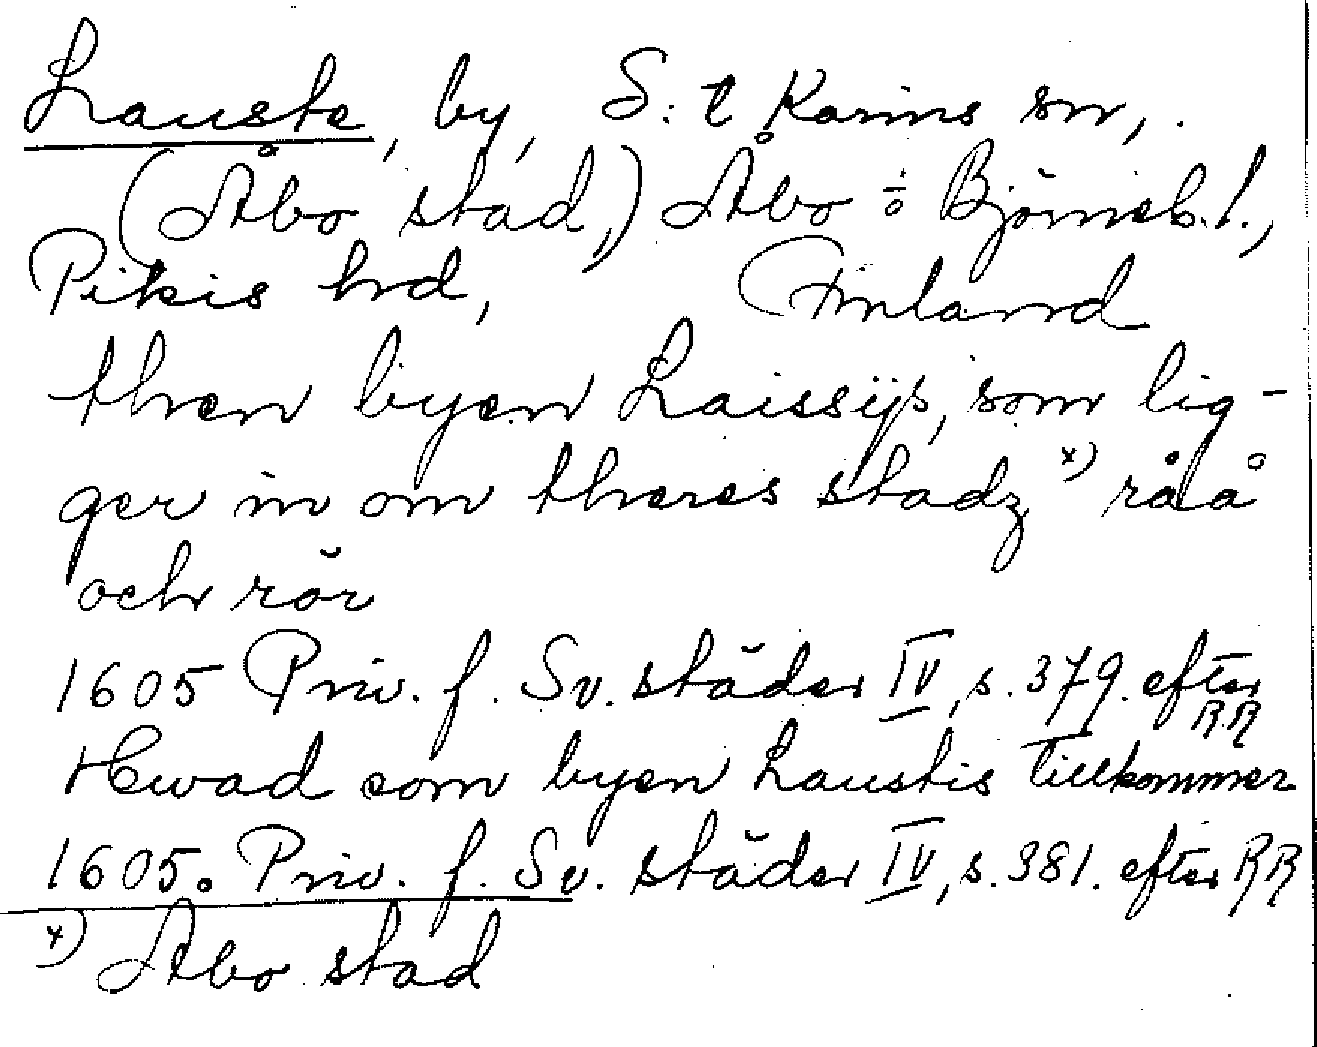 Lauste, by, S:t Karins sn,
(Åbo stad,) Åbo o Björneb. l.,
Pikis hrd, Finland
then byen Laissijs, som lig-
ger in om theres stadz x) råå
och rör
1605 Priv. f. Sv. städer IV, s. 379. efter RR
Hwad som byen Laustis tillkommer
1605. Priv. f. Sv. städer IV, s. 381. efter RR
x) Åbo stad